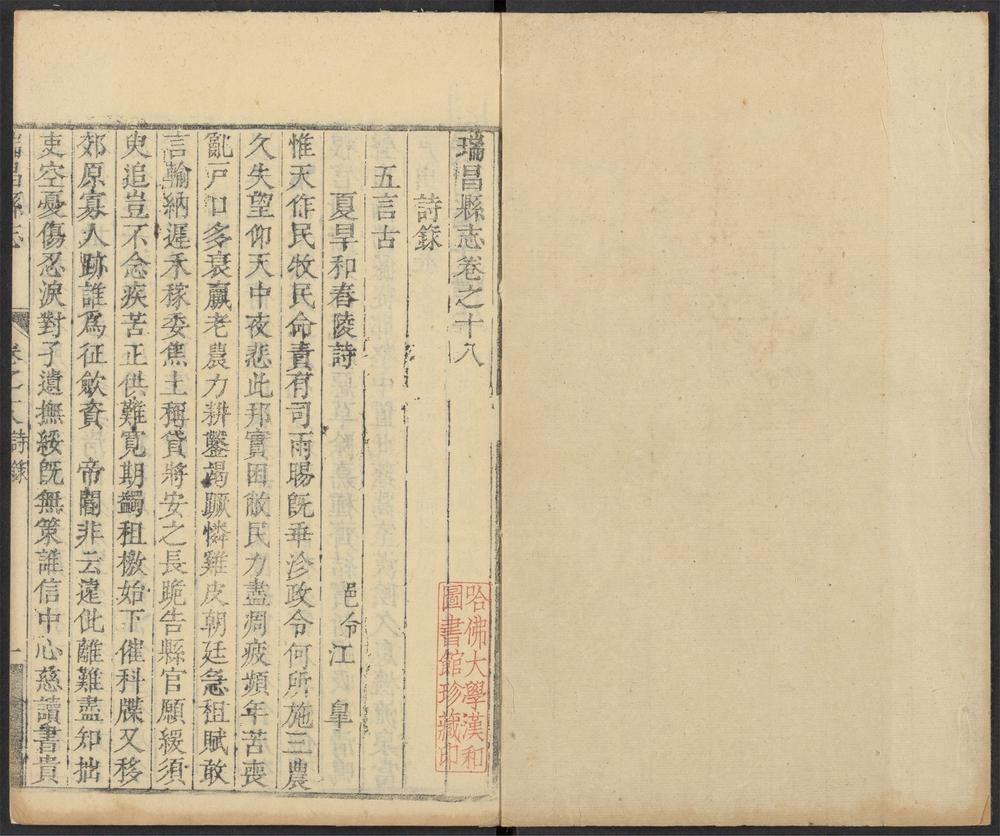 瑞昌縣志卷之十八
詩錄
五言古
夏旱和舂陵詩
邑令江 皐
惟天作民牧民命責有司雨暘既乖沴政令何所施三農
久失望仰天中夜悲此邦實困敝民力盡凋疲頻年苦喪
亂戸口多衰羸老農力耕鑿蹋蹶憐雞皮朝廷急租賦敢
言輸納遲禾稼委焦土稱貸將安之長跪告縣官願緩須
臾追豈不念疾苦正供難寛期蠲租檄始下催科牒又移
郊原寡人跡誰爲征歛資 帝閽非云遠仳離難盡知拙
吏空憂傷忍淚對孑遺撫綏既無策誰信中心慈讀書貴
瑞昌縣志
卷之十八詩錄
一
哈佛大學漢和圖書館珍藏印